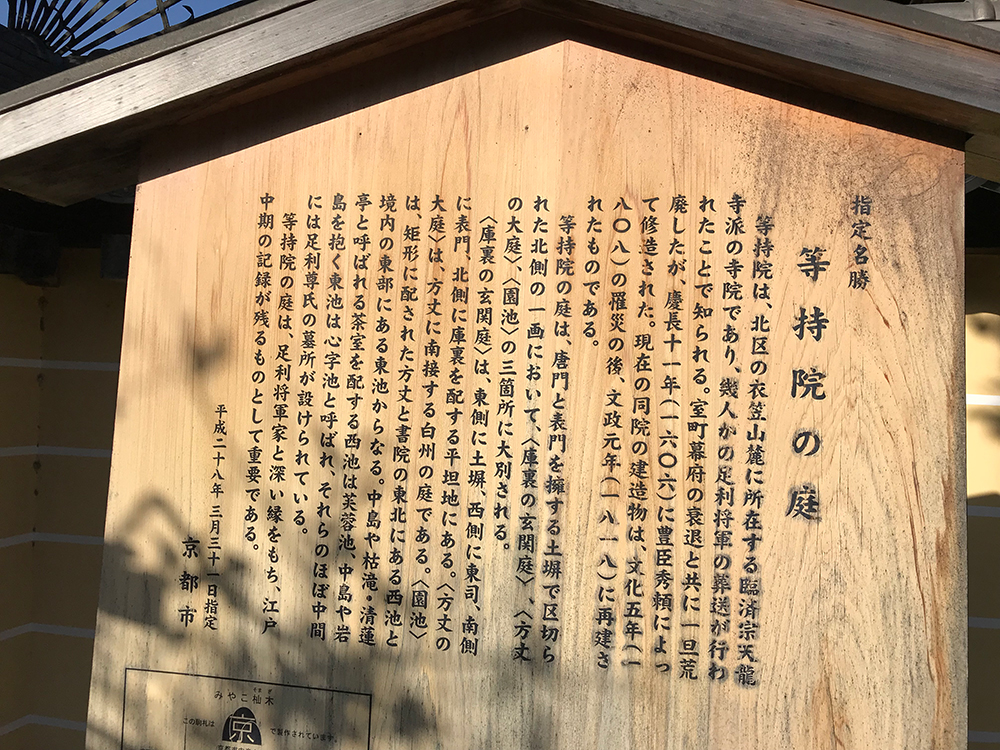 指定名勝
等持院の庭
等持院は、北区の衣笠山麓に所在する臨済宗天龍
寺派の寺院であり、幾人かの足利将軍の葬送が行わ
れたことで知られる。室町幕府の衰退と共に一旦荒
廃したが、慶長十一年(一六〇六)に豊臣秀頼によっ
て修造された。現在の同院の建造物は、文化五年(一
八〇八)の罹災の後、文政元年(一八一八)に再建さ
れたものである。
等持院の庭は、唐門と表門を擁する土塀で区切ら
れた北側の一画において、〈庫裏の玄関庭〉、〈方丈
の大庭〉、〈園池〉の三箇所に大別される。
〈庫裏の玄関庭〉は、東側に土塀、西側に東司、南側
に表門、北側に庫裏を配する平坦地にある。〈方丈の
大庭〉は、方丈に南接する白州の庭である。〈園池〉
は、矩形に配された方丈と書院の東北にある西池と
境内の東部にある東池からなる。中島や枯滝・清蓮
亭と呼ばれる茶室を配する西池は芙蓉池、中島や岩
島を抱く東池は心字池と呼ばれ、それらのほぼ中間
には足利尊氏の墓所が設けられている。
等持院の庭は、足利将軍家と深い縁をもち、江戸
中期の記録が残るものとして重要である。
平成二十八年三月三十一日指定
京都市
みやこ杣木
この駒札は
京
で製作されています。